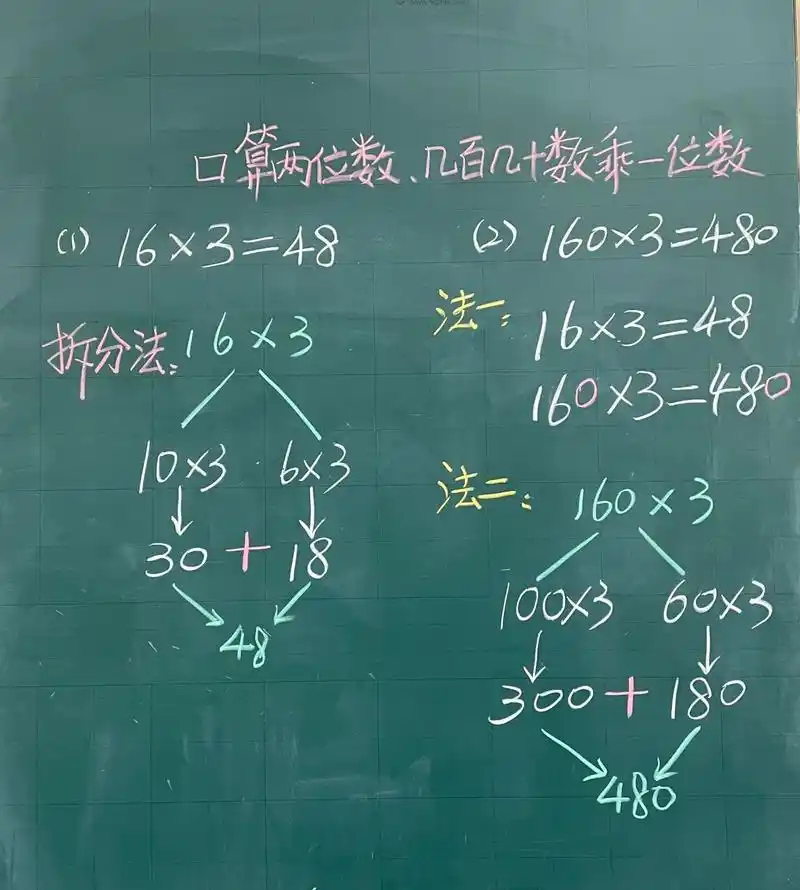 口算两位数、几百几十数乘一位数
(1) 16×3=48
拆分法: 16×3
10×3 6×3
30+18
48
(2) 160×3=480
法一: 16×3=48
160×3=480
法二: 160×3
100×3 60×3
300+180
480